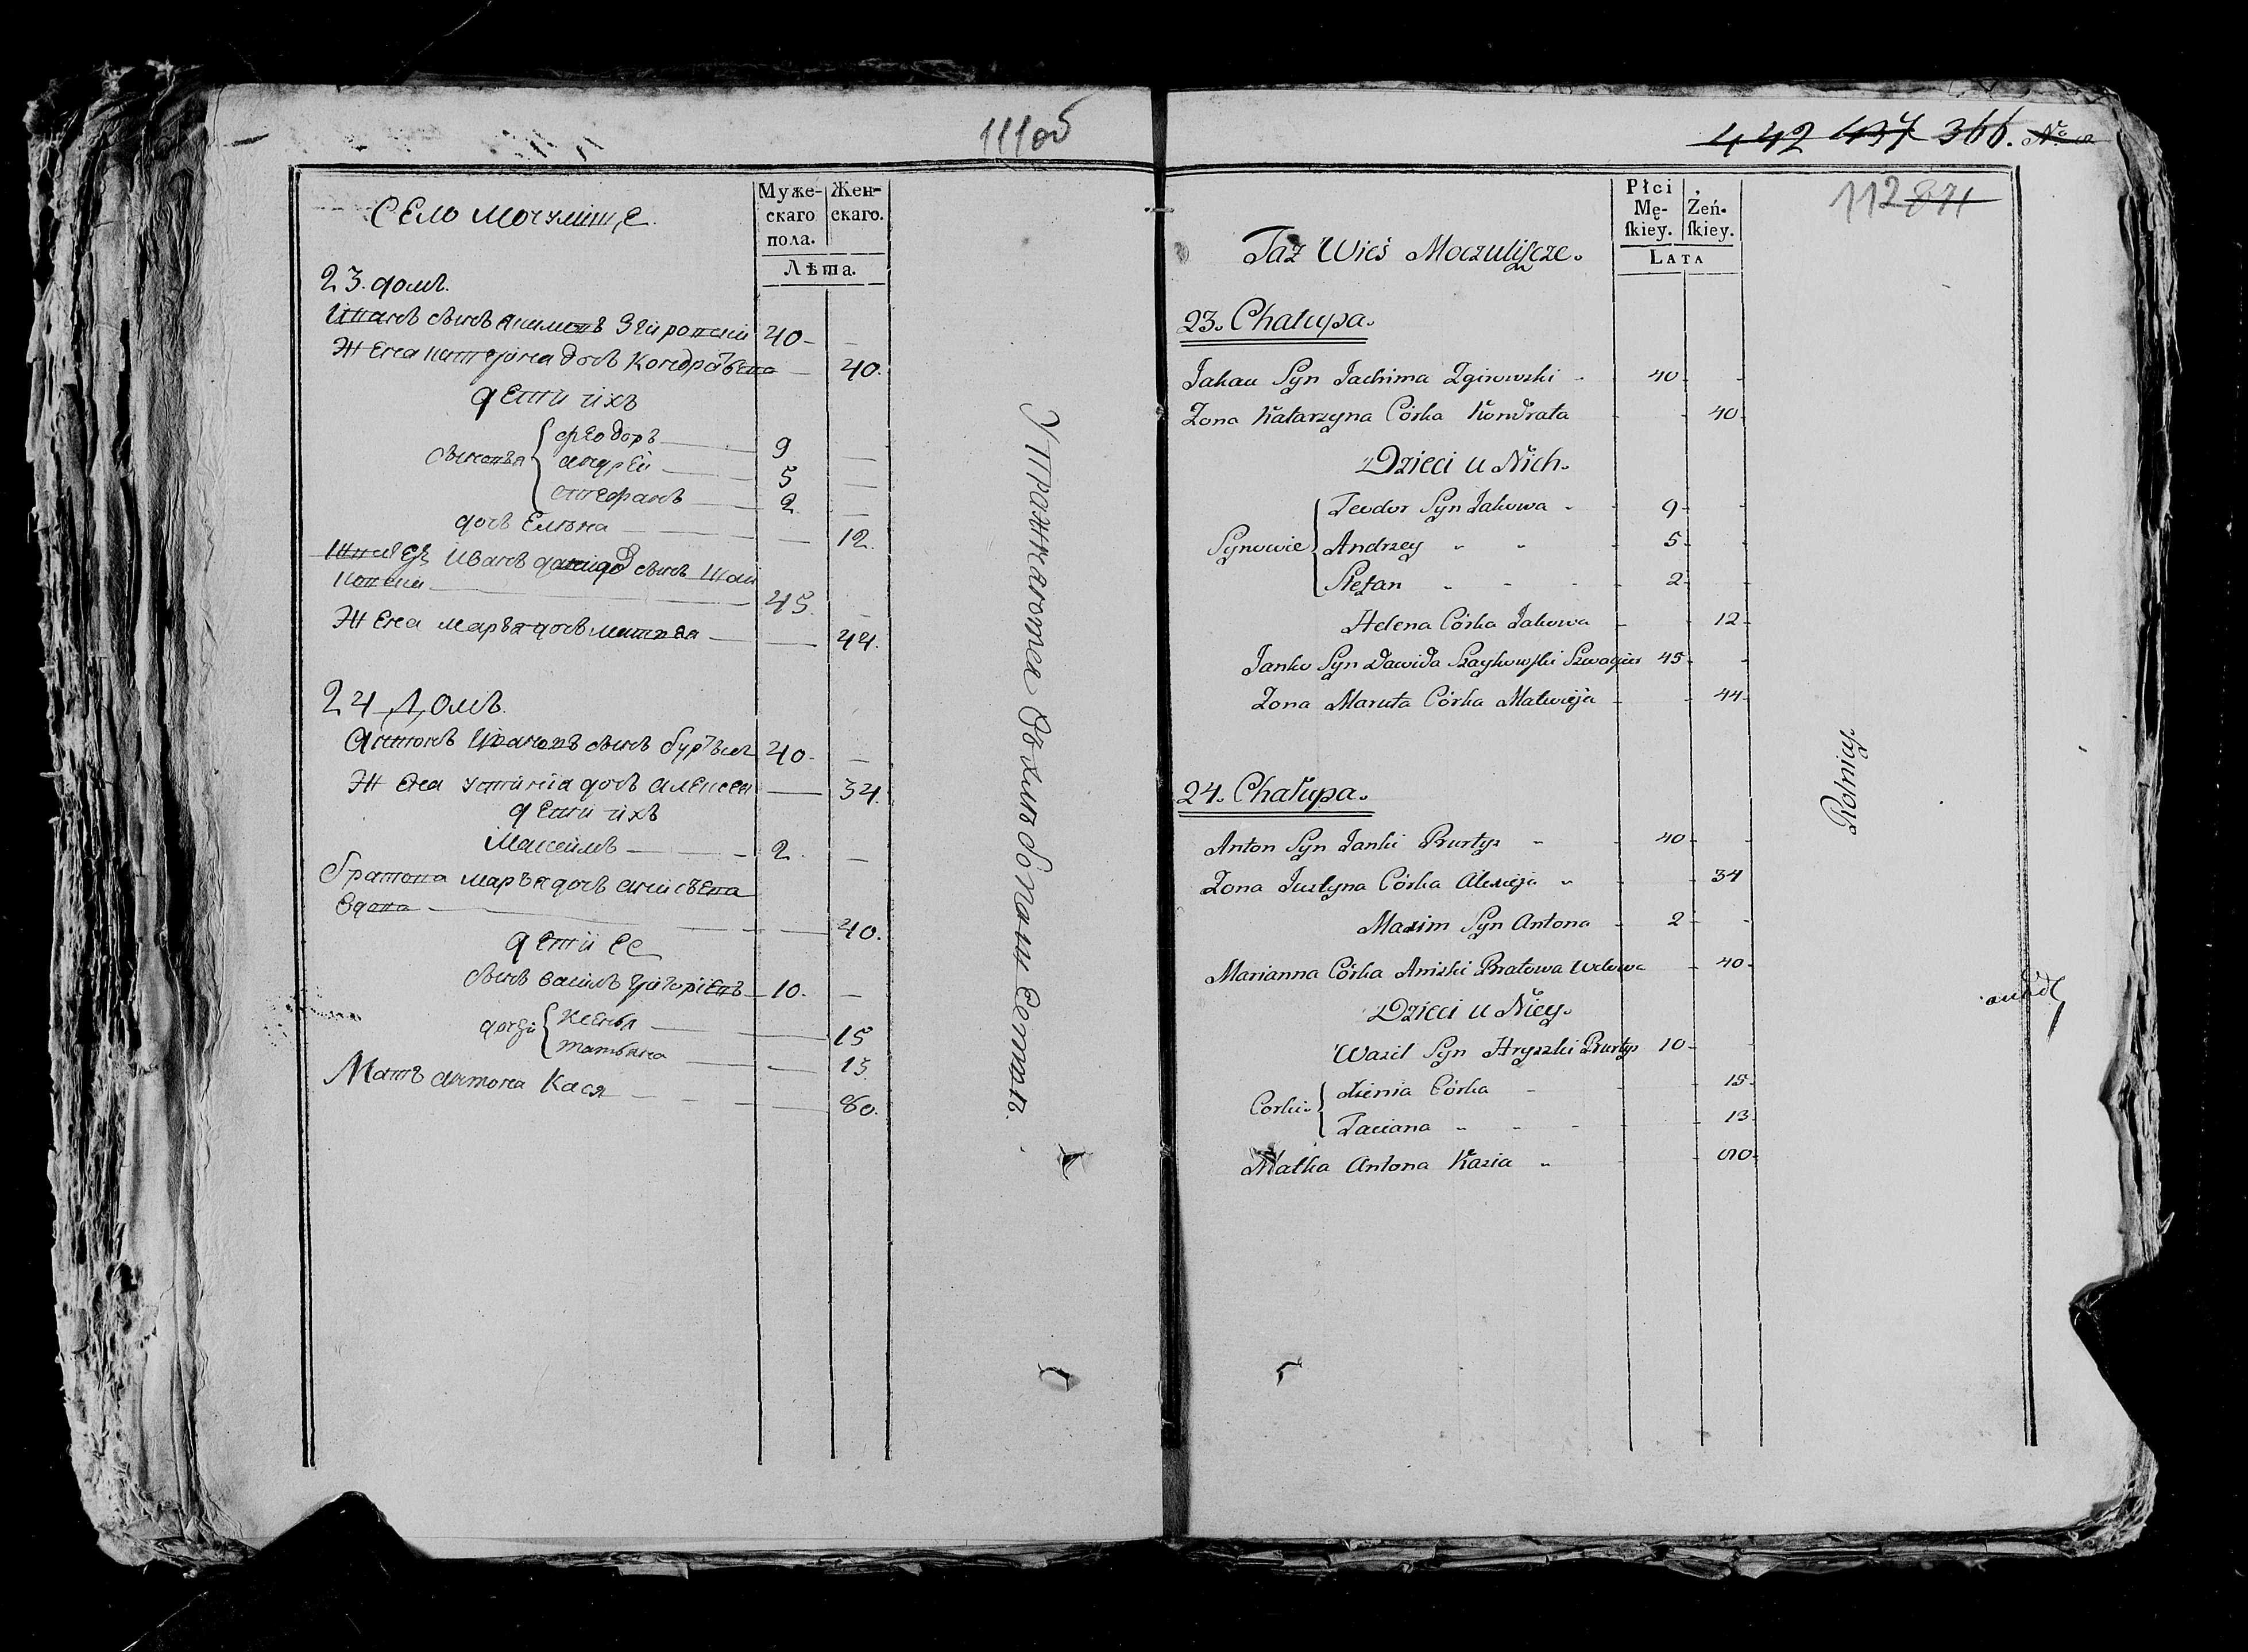 111 об
Село мочулище
Муже-
скаго
пола.
Жен-
скаго.
Лѣта.
23. домъ.
сынъ акимовъ Згировский 40 -
Жена катерина дочъ Кондратьева 40.
дети ихъ
сыновья
феодоръ 9
андрей 5
стефанъ 2
дочъ Елѣна 12.
Иванъ давидо сынъ Шай
ковский 45.
Жена марья дочъ матвея 44.
24 Домъ.
Антонъ Ивановъ сынъ Буртысъ 40 -
Жена устиниа дочъ алексея 34.
дети ихъ
Максимъ 2.
братова марья дочъ
вдова 40.
дети ее
сынъ василъ григориевъ 10.
дочери
ксеня 15
татьяна 13
Матъ антона Кася 80.
Упражнаются въ хлебопашестве.
442 437 366. No
112 871
Płci
Mę-
ſkiey.
Żeń-
ſkiey.
LATA
Taż Wieś Moczuliſcze.
23. Chałupa.
Jakau Syn Jachima Zgirowski - 40 -
Żona Katarzyna Córka Kondrata - 40 -
Dzieci u Nich.
Synowie
Teodor Syn Jakowa - 9 -
Andrzey " " 5 -
Stefan " - - 2 -
Helena Córka Jakowa - 12 -
Janko Syn Dawida Szaykowſki Szwagier 45 -
Żona Maruta Córka Matwieja - 44 -
24. Chałupa.
Anton Syn Janki Burtys - 40 -
Żona Justyna Córka Alexieja " 34
Maxim Syn Antona - 2 -
Marianna Córka Aniski Bratowa Wdowa - 40 -
Dzieci u Niey.
Wasil Syn Hryszki Burtys 10 -
Corki
Xienia Córka - 15 -
Taciana " - - 13 -
Matka Antona Kasia " 80 -
Rolnicy.